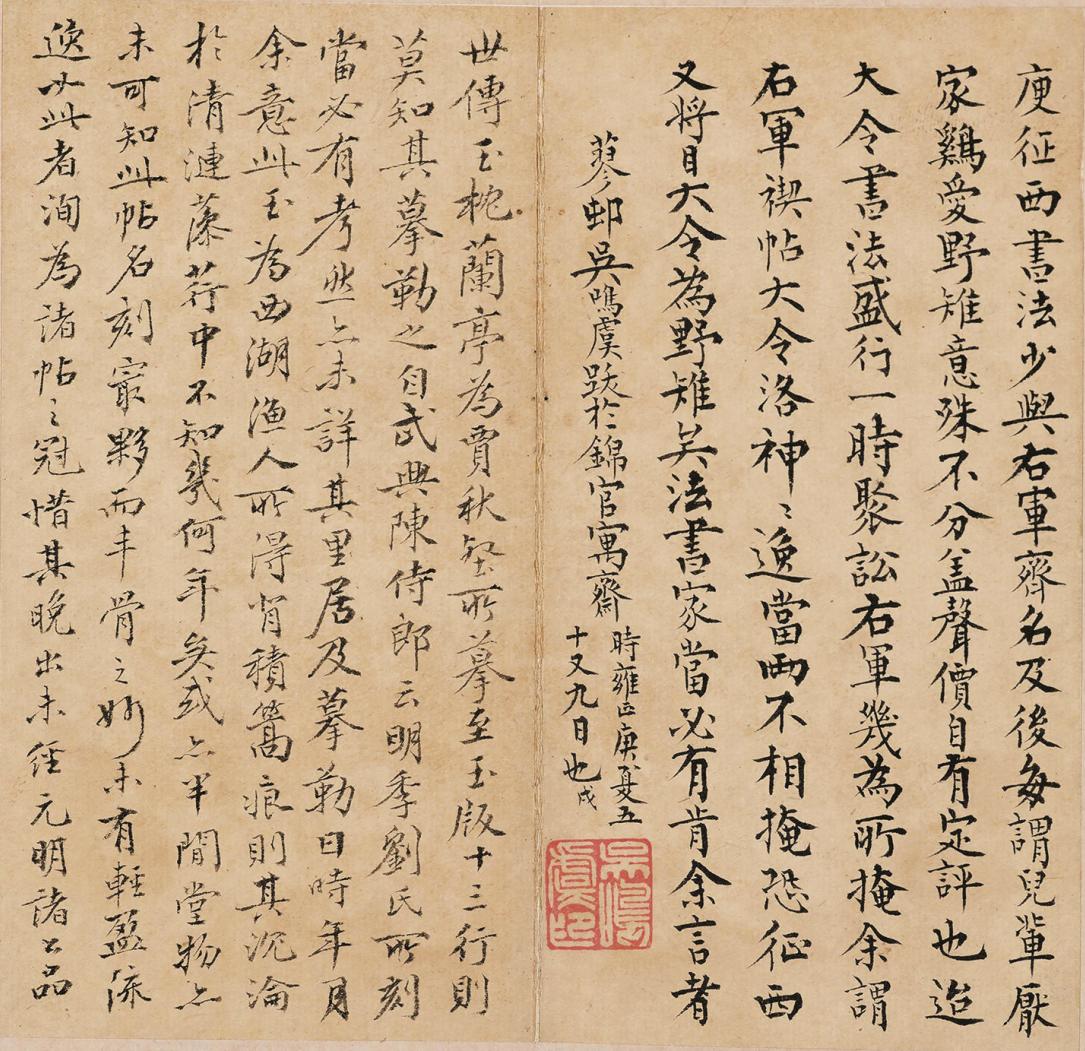 庾征西書法少與右軍齊名及後每謂兒輩厭
家鷄愛野雉意殊不分盖聲價自有定評也迨
大令書法盛行一時聚訟右軍幾為所掩余謂
右軍禊帖大令洛神〻逸當兩不相掩恐征西
又將目大令為野雉矣法書家當必有肯余言者
蓼邨吳鳴虞跋於錦官寓齋
時雍正庚夏五
十又九日也戌
吳鳴虞印
世傳玉枕蘭亭為賈秋壑所摹至玉版十三行則
莫知其摹勒之自武興陳侍郎云明季劉氏所刻
當必有考然亦未詳其里居及摹勒日時年月
余意此玉為西湖漁人所得背積篙痕則其沉淪
於清漣藻荇中不知幾何年矣或亦半閒堂物亦
未可知此帖名刻最夥而丰骨之妙未有輕盈流
逸如此者洵為諸帖〻冠惜其晚出未經元明諸公品